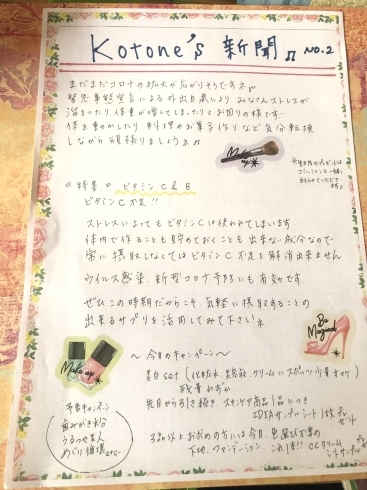 Kotone's 新聞♫ NO.2
まだまだコロナの拡大が広がりそうですネ
緊急事態宣言による外出自粛により みなさんストレスが
溜まったり 体重が増えてしまったとお困りの様です…
体を動かしたり 料理やお菓子作りなど 気分転換
しながら 頑張りましょうネ♫
Make up
《特集》 ビタミンC & B
ビタミンC不足!!
ストレスによっても ビタミンCは使われてしまいます
体内で作ることも 貯めておくことも 出来ない成分なので
常に 摂取しなくては ビタミンC不足を解消出来ません
ウイルス感染、新型コロナ予防にも有効です
ぜひ この時期だからこそ、気軽に 摂取することの
出来るサプリを活用してみて下さいネ
Be Magical
Make up
～ 今月のキャンペーン～
美白set (化粧水 美容液 クリームに
残量わずか
先月から引き続き スキンケア商品1品につき
サンプルシート1枚プレゼント
予告キャンペーン
うるつや美人
めぐり循環 etc…
3品以上お求めの方には 今月
下地、ファンデーション、 CCクリーム